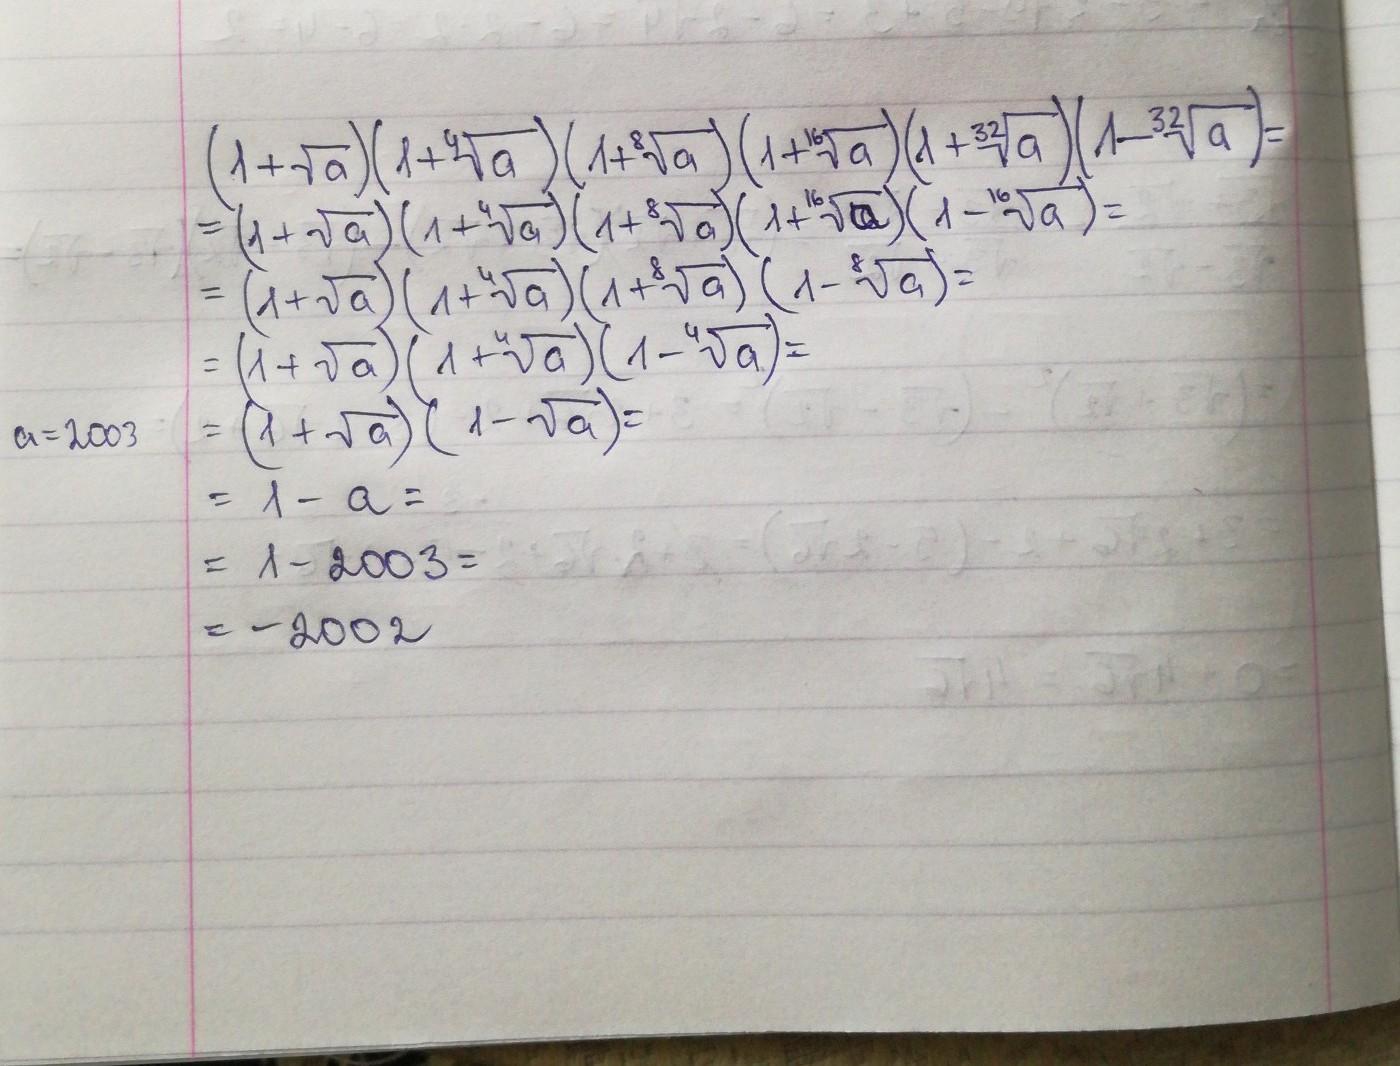 (1+√a)(1+⁴√a)(1+⁸√a)(1+¹⁶√a)(1+³²√a)(1-³²√a)=
=(1+√a)(1+⁴√a)(1+⁸√a)(1+¹⁶√a)(1-¹⁶√a)=
=(1+√a)(1+⁴√a)(1+⁸√a)(1-⁸√a)=
=(1+√a)(1+⁴√a)(1-⁴√a)=
a=2003 =(1+√a)(1-√a)=
= 1-a=
= 1-2003=
= -2002